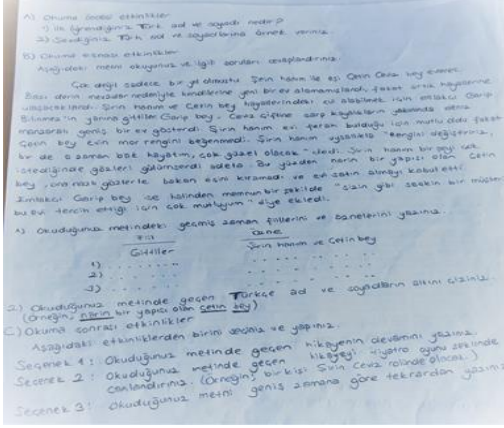 A) Okuma öncesi etkinlikler
1) İlk öğrendiğiniz Türk ad ve soyadı nedir?
2) Sevdiğiniz Türk ad ve soyadlarına örnek veriniz.
B) Okuma esnası etkinlikler
Aşağıdaki metni okuyunuz ve ilgili soruları cevaplandırınız.
Çok değil sadece bir yıl olmuştu Şirin hanım ile eşi Çetin Ceviz bey evleneli.
Bazı derin mevzular nedeniyle kendilerine yeni bir ev alamamışlardı fakat artık hayallerine
ulaşacaklardı. Şirin hanım ve Çetin bey hayallerindeki evi alabilmek için emlakçı Garip
Bilmez'in yanına gittiler. Garip bey, Ceviz çiftine sarp kayalıkların yanında deniz
manzaralı geniş bir ev gösterdi. Şirin hanım evi ferah bulduğu için mutlu oldu fakat
Çetin bey evin mor rengini beğenmedi. Şirin hanım "rengini değiştiririz,
bir de o zaman bak hayatım, çok güzel olacak" dedi. Şirin hanım bir şeyi çok
istediğinde gözleri gülümserdi adeta. Bu yüzden narin bir yapısı olan Çetin
bey, ona nazlı gözlerle bakan eşini kıramadı ve evi satın almayı kabul etti.
Emlakçı Garip bey ise halinden memnun bir şekilde "sizin gibi seçkin bir müşteri
bu evi tercih ettiği için çok mutluyum" diye ekledi.
1) Okuduğunuz metindeki geçmiş zaman fiillerini ve öznelerini yazınız.
Fiil Özne
Gittiler Şirin hanım ve Çetin bey
1) . . . . . . . . . . . . . .
2) . . . . . . . . . . . . . .
3) . . . . . . . . . . . . . .
2) Okuduğunuz metinde geçen Türkçe ad ve soyadların altını çiziniz.
(Örneğin, narin bir yapısı olan Çetin bey)
C) Okuma sonrası etkinlikler
Aşağıdaki etkinliklerden birini seçiniz ve yapınız.
Seçenek 1: Okuduğunuz metinde geçen hikayenin devamını yazınız.
Seçenek 2: Okuduğunuz metinde geçen hikayeyi tiyatro oyunu şeklinde
canlandırınız. (Örneğin, bir kişi Şirin Ceviz rolünde olacak.)
Seçenek 3: Okuduğunuz metni geniş zamana göre tekrardan yazınız